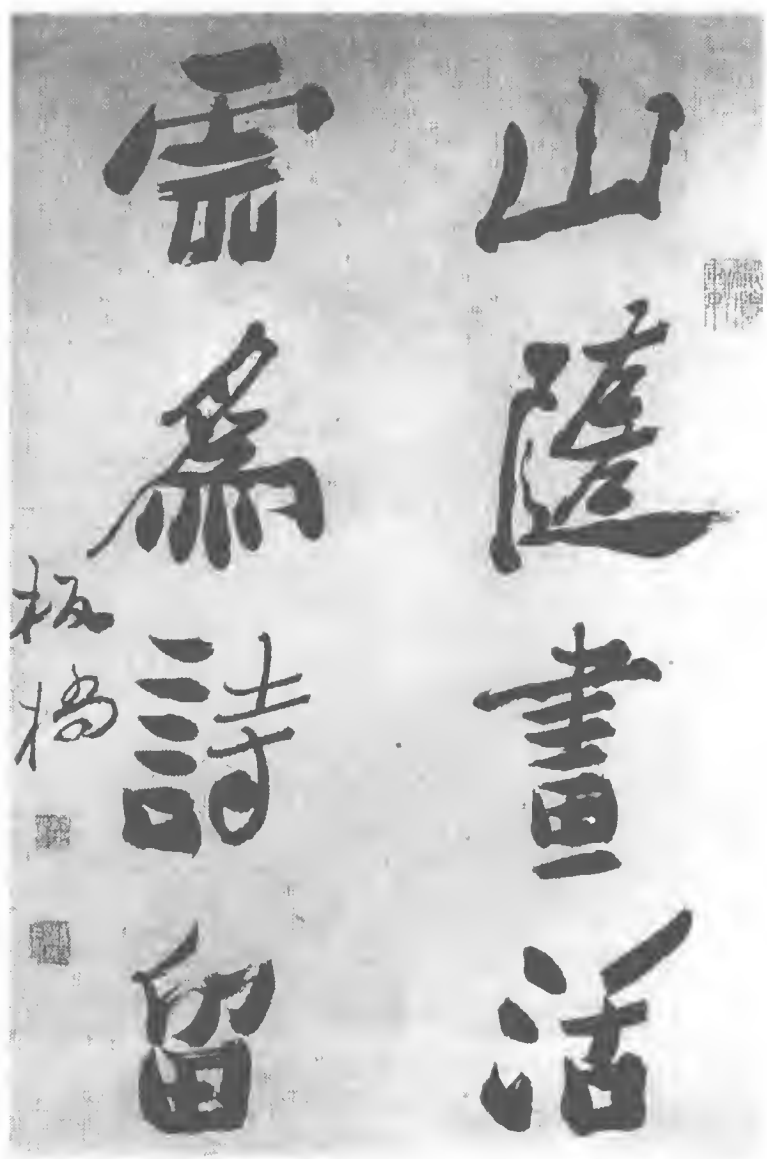 山隨畫活
雲爲詩留
板橋